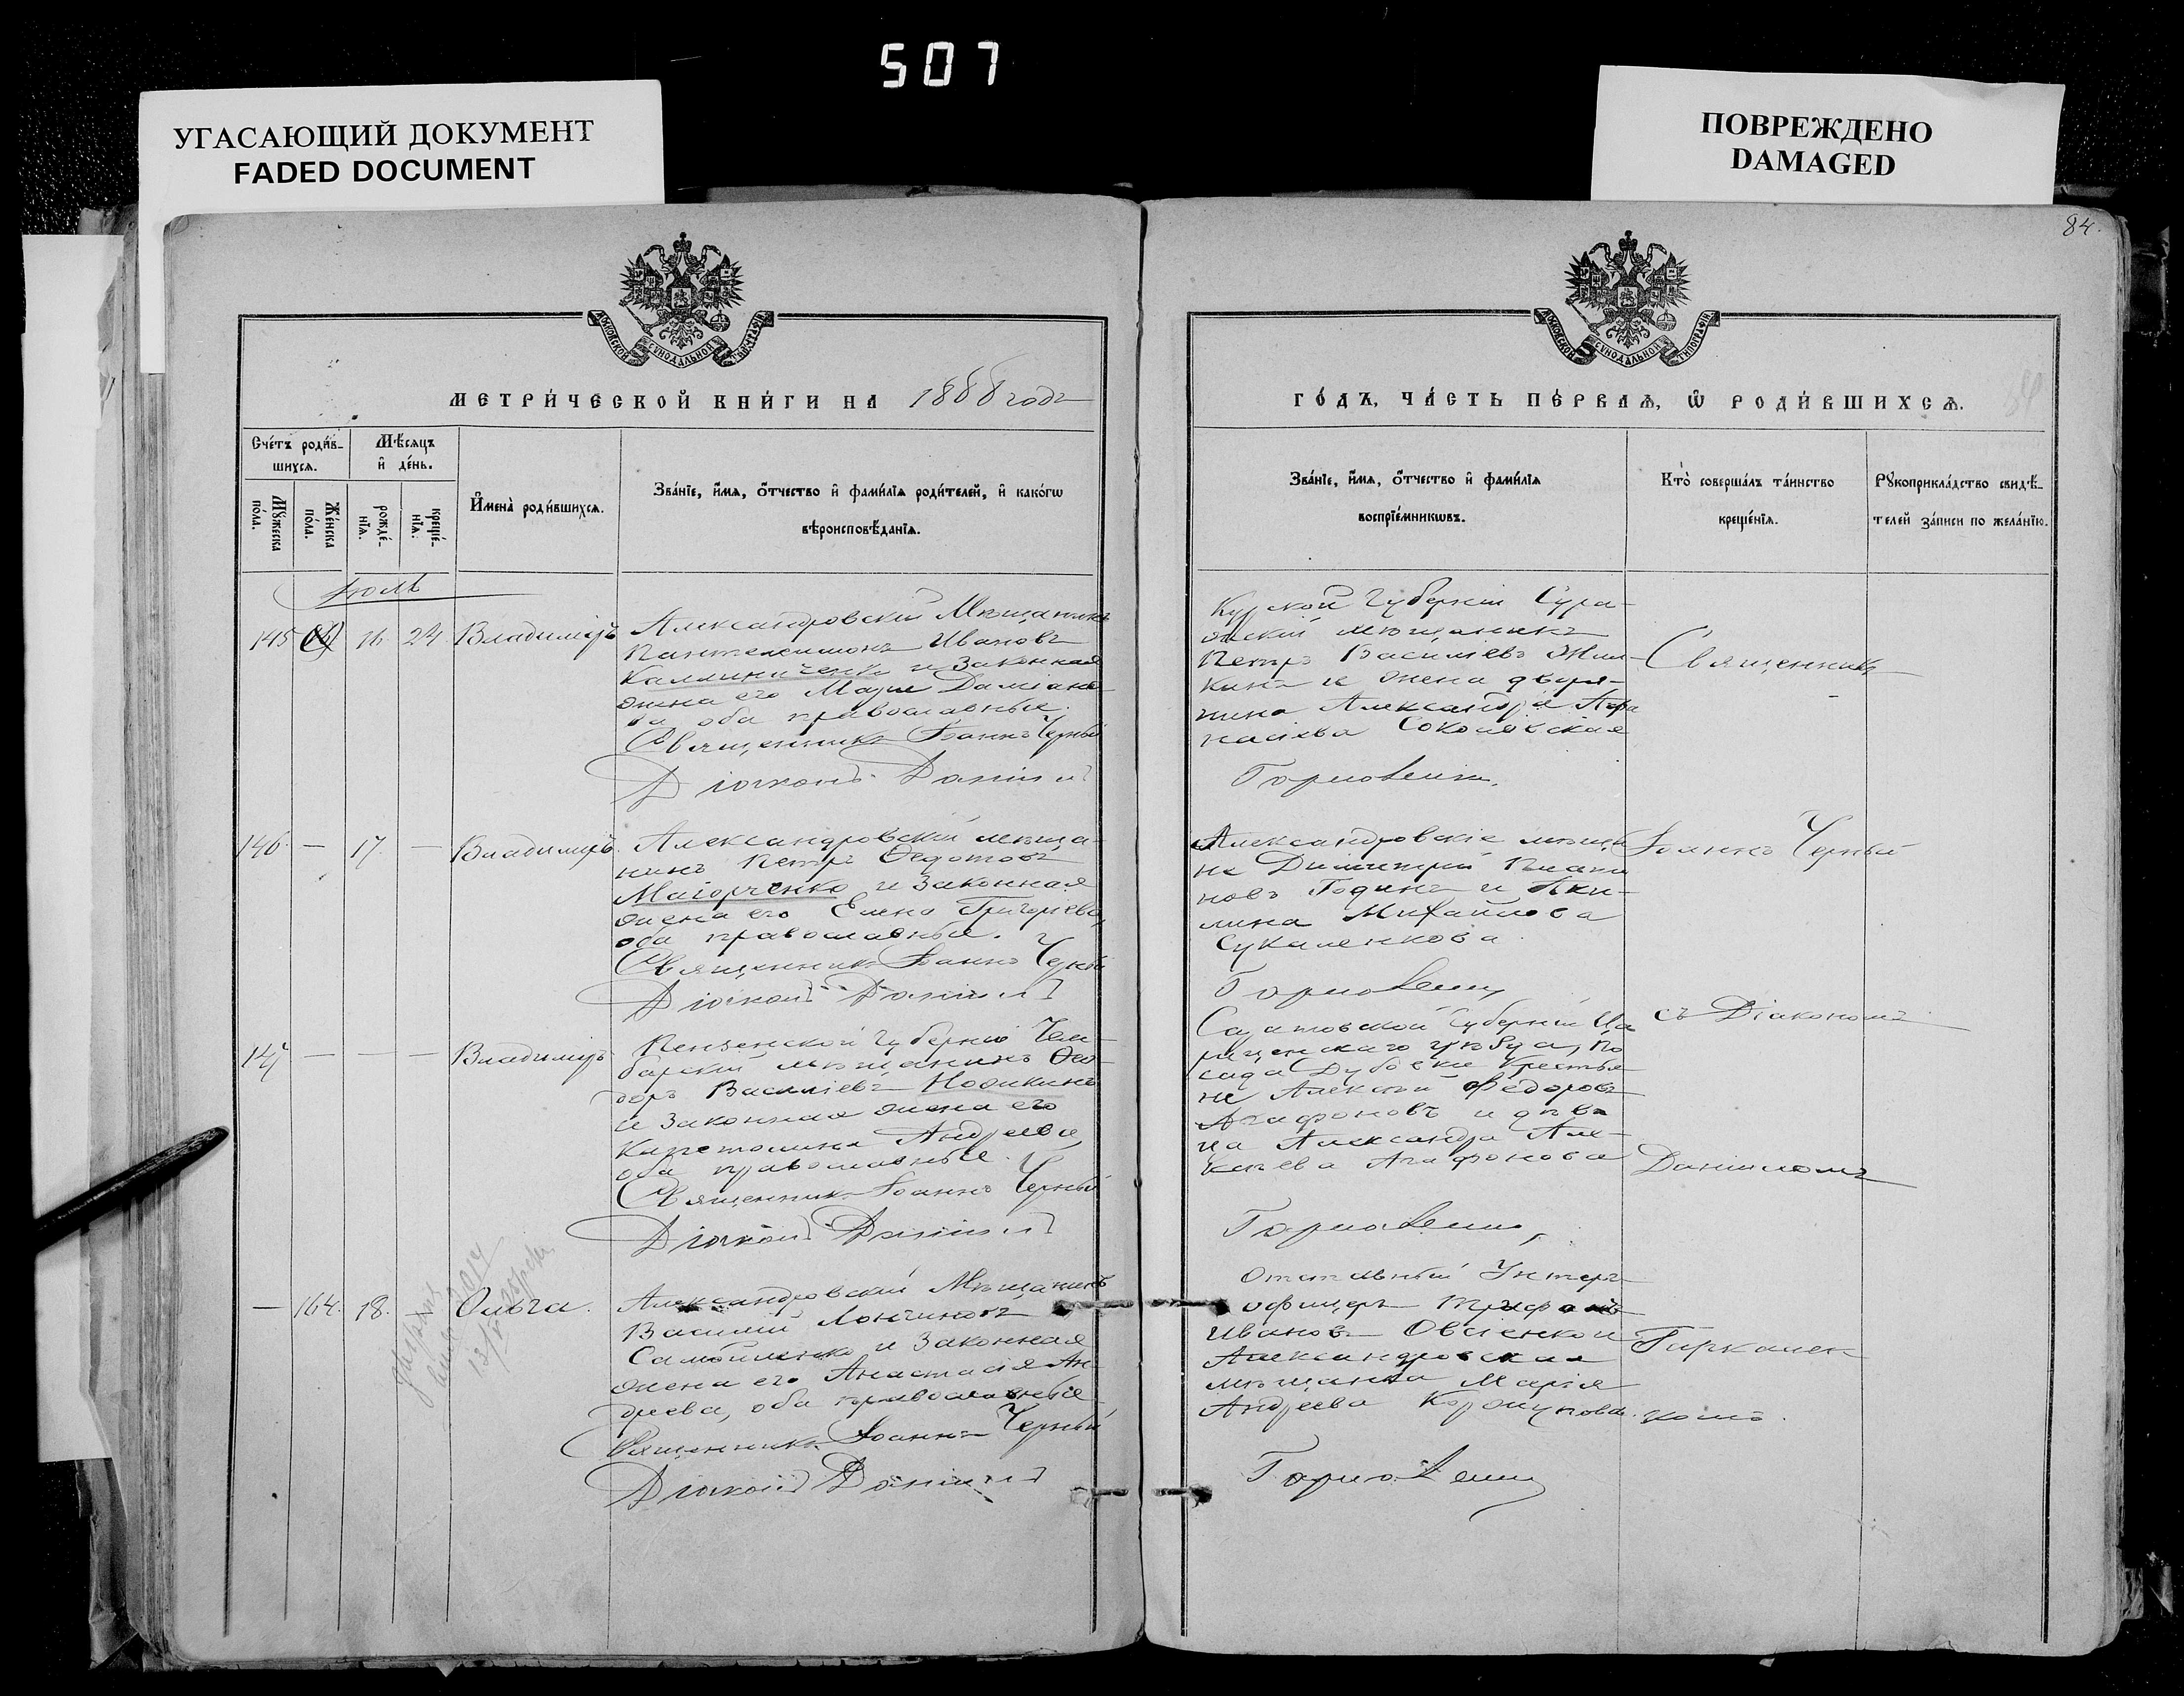 507
УГАСАЮЩИЙ ДОКУМЕНТ
FADED DOCUMENT
ПОВРЕЖДЕНО
DAMAGED
84.
МЕТРИ́ЧЕСКОЙ КНИ́ГИ НА 1888 годъ
Сче́тъ роди́в-
шихсѧ.
Мѣ́сѧцъ
и҆ де́нь.
Мꙋ́жеска
по́ла.
Же́нска
по́ла.
рожде́-
нїѧ.
креще́-
нїѧ.
И҆мена̀ роди́вшихсѧ.
Зва́нїе, и҆́мѧ, ѻ҆́тчество и҆ фами́лїѧ роди́телей, и҆ како́гѡ
вѣроисповѣ́данїѧ.
Іюль
145 16 24 Владиміръ
Александровскій Мѣщанинъ
Пантелеимонъ Ивановъ
Калиниченко и Законная
жена его Марія Даміано-
ва оба православные.
Священникъ Іоаннъ Черный
Діаконъ Даніилъ
146. — 17. — Владиміръ.
Александровскій мѣща-
нинъ Петръ Ѳедотовъ
Магорченко и Законная
жена его Елена Григорьева,
оба православные.
Священникъ Іоаннъ Черный
Діаконъ Даніилъ
147 — — — Владиміръ
Пензенской Губерніи Чем-
барскій мѣщанинъ Ѳео-
доръ Василіевъ Носикинъ
и Законная жена его
Капетолина Андреева,
оба православные.
Священникъ Іоаннъ Черный
Діаконъ Даніилъ
— 164. 18. — Ольга.
Александровскій Мѣщанинъ
Василий Лонгиновъ
Самойленко и Законная
жена его Анастасія Ан-
дреева, оба православные
Священникъ Іоаннъ Черный
Діаконъ Даніилъ
ГО́ДЪ, ЧА́СТЬ ПЕ́РВАѦ, Ѡ҆ РОДИ́ВШИХСѦ.
Зва́нїе, и҆́мѧ, ѻ҆́тчество и҆ фами́лїѧ
воспрїе́мникѡвъ.
Кто̀ соверша́лъ та́инство
креще́нїѧ.
Рꙋкоприкла́дство свидѣ́-
телей за́писи по жела́нїю.
Курской Губерніи Сура-
жскій мѣщанинъ
Петръ Василіевъ
и жена дворя-
нина Александра Афа
насіева Соколовская
Горновенко
Священникъ
Александровскіе мѣща
не Димитрій
Годинъ и Аки-
лина Михайлова
Сукаленкова.
Горновенко
Іоаннъ Черный
Саратовской Губерніи Ца
рицынскаго уѣзда, по
сада Дубовки Крестья
не Алексѣй Федоровъ
Агафоновъ и дѣви
ца Александра Але-
ксѣева Агафонова
Горновенко
съ Діакономъ
Данииломъ
Отставный Унтеръ-
офицеръ Трифонъ
Ивановъ Овсіенко и
Александровская
мѣщанка Марія
Андреева Коршунова.
Горновенко